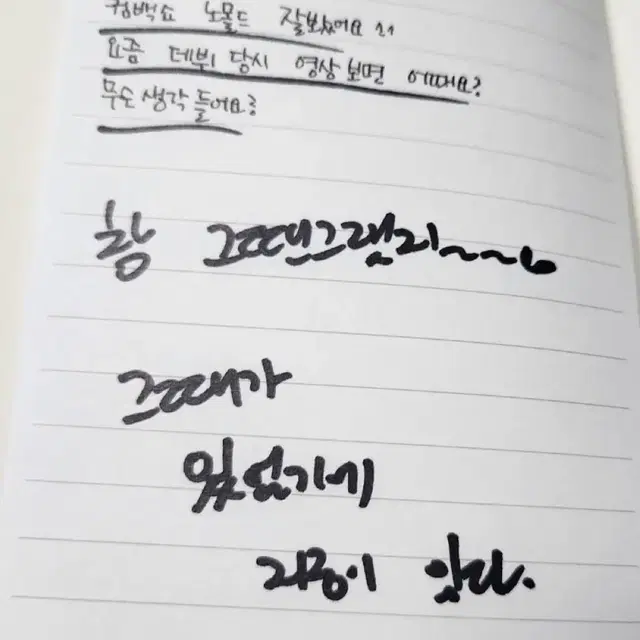 컴백쇼 노몰드 잘봤어요 ㅠㅠ
요즘 데뷔 당시 영상 보면 어때요?
무슨 생각 들어요?
흠 그땐그랬지~~
그때가
있었기에
지금이 있다.